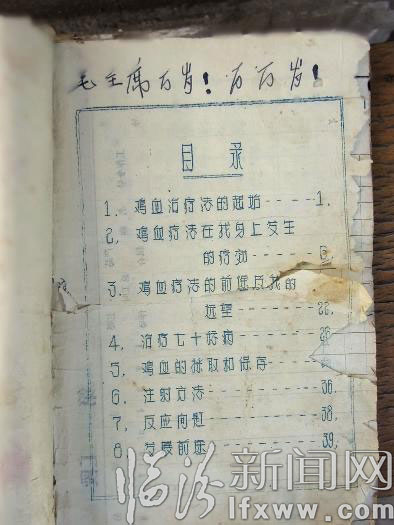 毛主席万岁！万万岁！
目录
1. 鸡血治疗法的起始-----1.
2, 鸡血疗法在我身上发生
的疗効-----
3. 鸡血疗法的前途及我的
远望-----22.
4, 治疗七十标病-----26
5, 鸡血的採取和保存-----
6. 注射方法-----36.
7, 反应问题-----38.
8 发展前途-----39.
临汾新闻网
lfxww.com